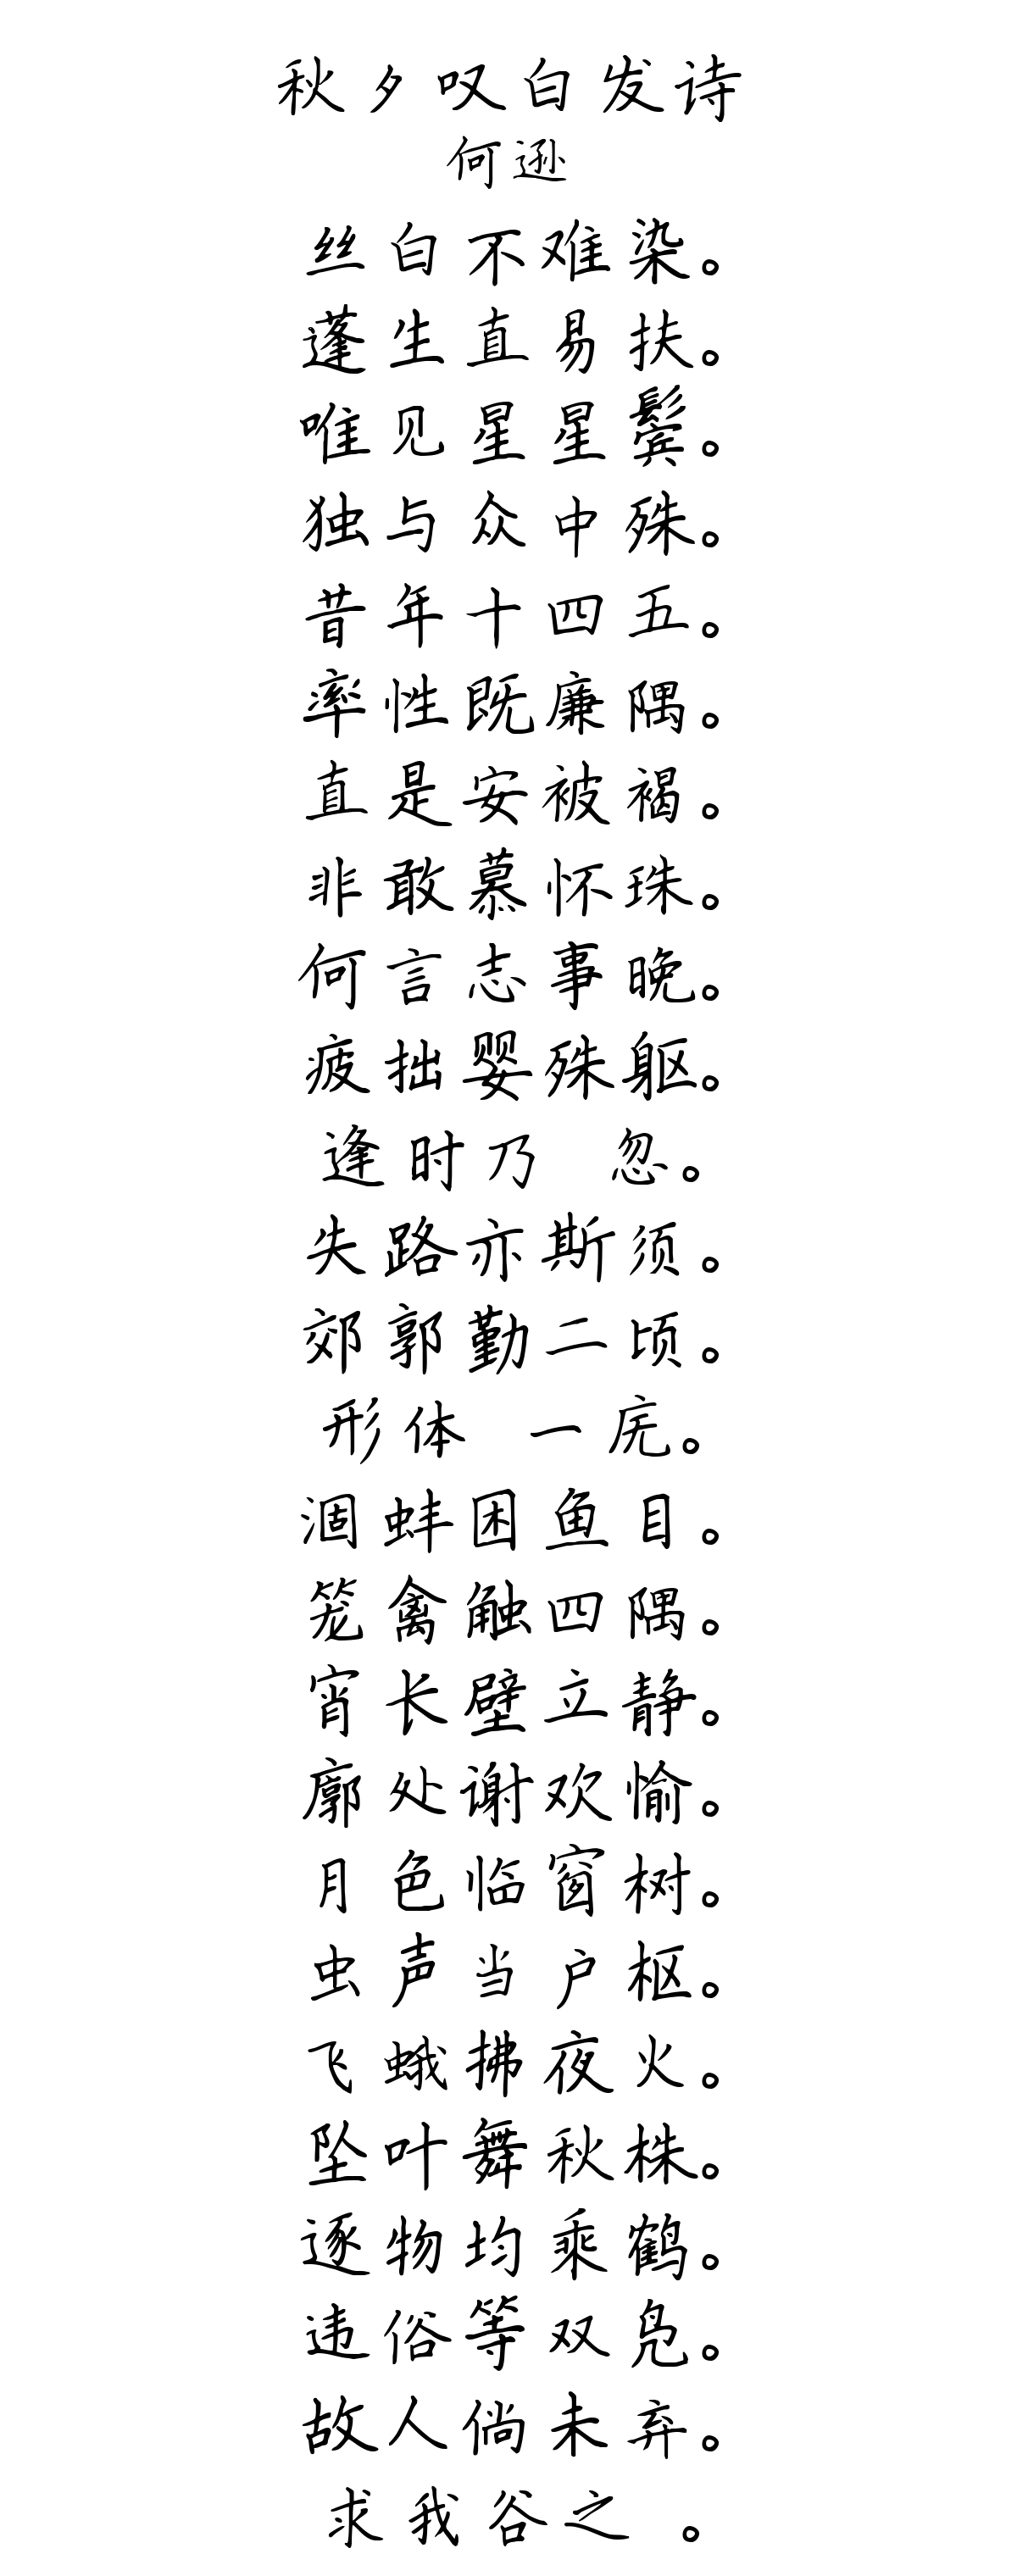 秋夕叹白发诗
何逊
丝白不难染。
蓬生直易扶。
唯见星星鬓。
独与众中殊。
昔年十四五。
率性既廉隅。
直是安被褐。
非敢慕怀珠。
何言志事晚。
疲拙婴殊躯。
逢时乃 忽。
失路亦斯须。
郊郭勤二顷。
形体 一庑。
涸蚌困鱼目。
笼禽触四隅。
宵长壁立静。
廓处谢欢愉。
月色临窗树。
虫声当户枢。
飞蛾拂夜火。
坠叶舞秋株。
逐物均乘鹤。
违俗等双凫。
故人倘未弃。
求我谷之 。